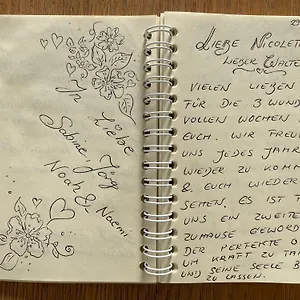 In Liebe
Sabine, Jörg
Noah & Naemi
LIEBE NICOLET
LIEBER WALTE
VIELEN LIEBEN
FÜR DIE 3 WUND
VOLLEN WOCHEN
EUCH. WIR FREUE
UNS JEDES JAHR
WIEDER ZU KOMM
& EUCH WIEDER
SEHEN. ES IST
UNS EIN ZWEITE
ZUHAUSE GEWORD
DER PERFEKTE O
UM KRAFT ZU TA
UND SEINE SEELE B
ZU LASSEN.